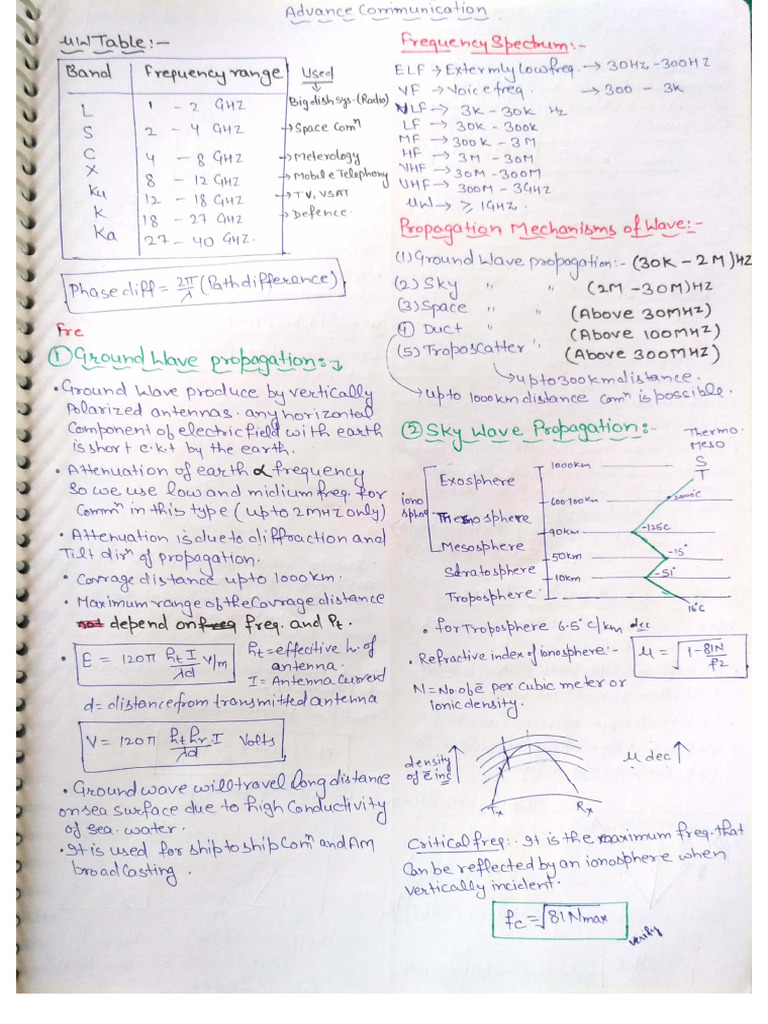 Advance Communication
μW Table:-
Band Frequency range Used
L 1 - 2 GHz Big dish sys. (Radio)
S 2 - 4 GHz → Space Comⁿ
C 4 - 8 GHz → Meterology
X 8 - 12 GHz → Mobile Telephony
Ku 12 - 18 GHz → TV, VSAT
K 18 - 27 GHz → Defence.
Ka 27 - 40 GHz.
Phase diff = 2π/λ (Path difference)
Fre
① Ground Wave propagation:-
• Ground Wave produce by vertically
Polarized antennas. any horizontal
Component of electric field with earth
is short c.k.t by the earth.
• Attenuation of earth ∝ frequency
so we use low and midium freq. for
Commⁿ in this type (up to 2MHz only)
• Attenuation is due to diffraction and
Tilt dirⁿ of propagation.
• Covrage distance upto 1000 km.
• Maximum range of the Covrage distance
not depend on freq freq. and Pt.
• E = 120π ht I / λd V/m
ht = effective h. of
antenna.
I = Antenna Current
d = distance from transmitted antenna
V = 120π ht hr I / λd Volts
• Ground wave will travel long distance
on sea surface due to high Conductivity
of sea water.
• It is used for ship to ship Comⁿ and Am
broad Casting.
Frequency Spectrum:-
ELF → Extermly low freq. → 30Hz - 300Hz
VF → Voice freq. → 300 - 3K
VLF → 3K - 30K Hz
LF → 30K - 300K
MF → 300K - 3M
HF → 3M - 30M
VHF → 30M - 300M
UHF → 300M - 3GHz
μW → ≥ 1GHz.
Propagation Mechanisms of Wave:-
(1) Ground Wave propagation:- (30K - 2M)Hz
(2) Sky " " (2M - 30M)Hz
(3) Space " " (Above 30MHz)
④ Duct " " (Above 100MHz)
(5) Troposcatter " (Above 300MHz)
→ upto 300 km distance.
→ upto 1000 km distance comⁿ is possible.
② Sky Wave Propagation:-
Thermo
Meso
S
T
1000 km
Exosphere
600-700 km 2000°C
iono
sphere
Thermosphere
90 km -125°C
Mesosphere
50 km -15°
Stratosphere
10 km -51°
Troposphere
16°C
• for Troposphere 6.5°C/km dec
• Refractive index of ionosphere:- μ = √1-81N/f2
N = No. of ē per cubic meter or
ionic density.
density
of ē inc
μ dec ↑
Tx Rx
Critical freq:- It is the maximum freq. that
Can be reflected by an ionosphere when
vertically incident.
fc = √81Nmax
verify